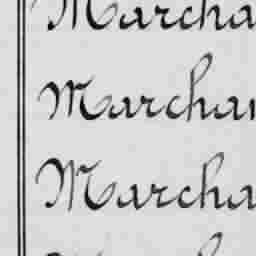 Marcha
Marchan
Marcha